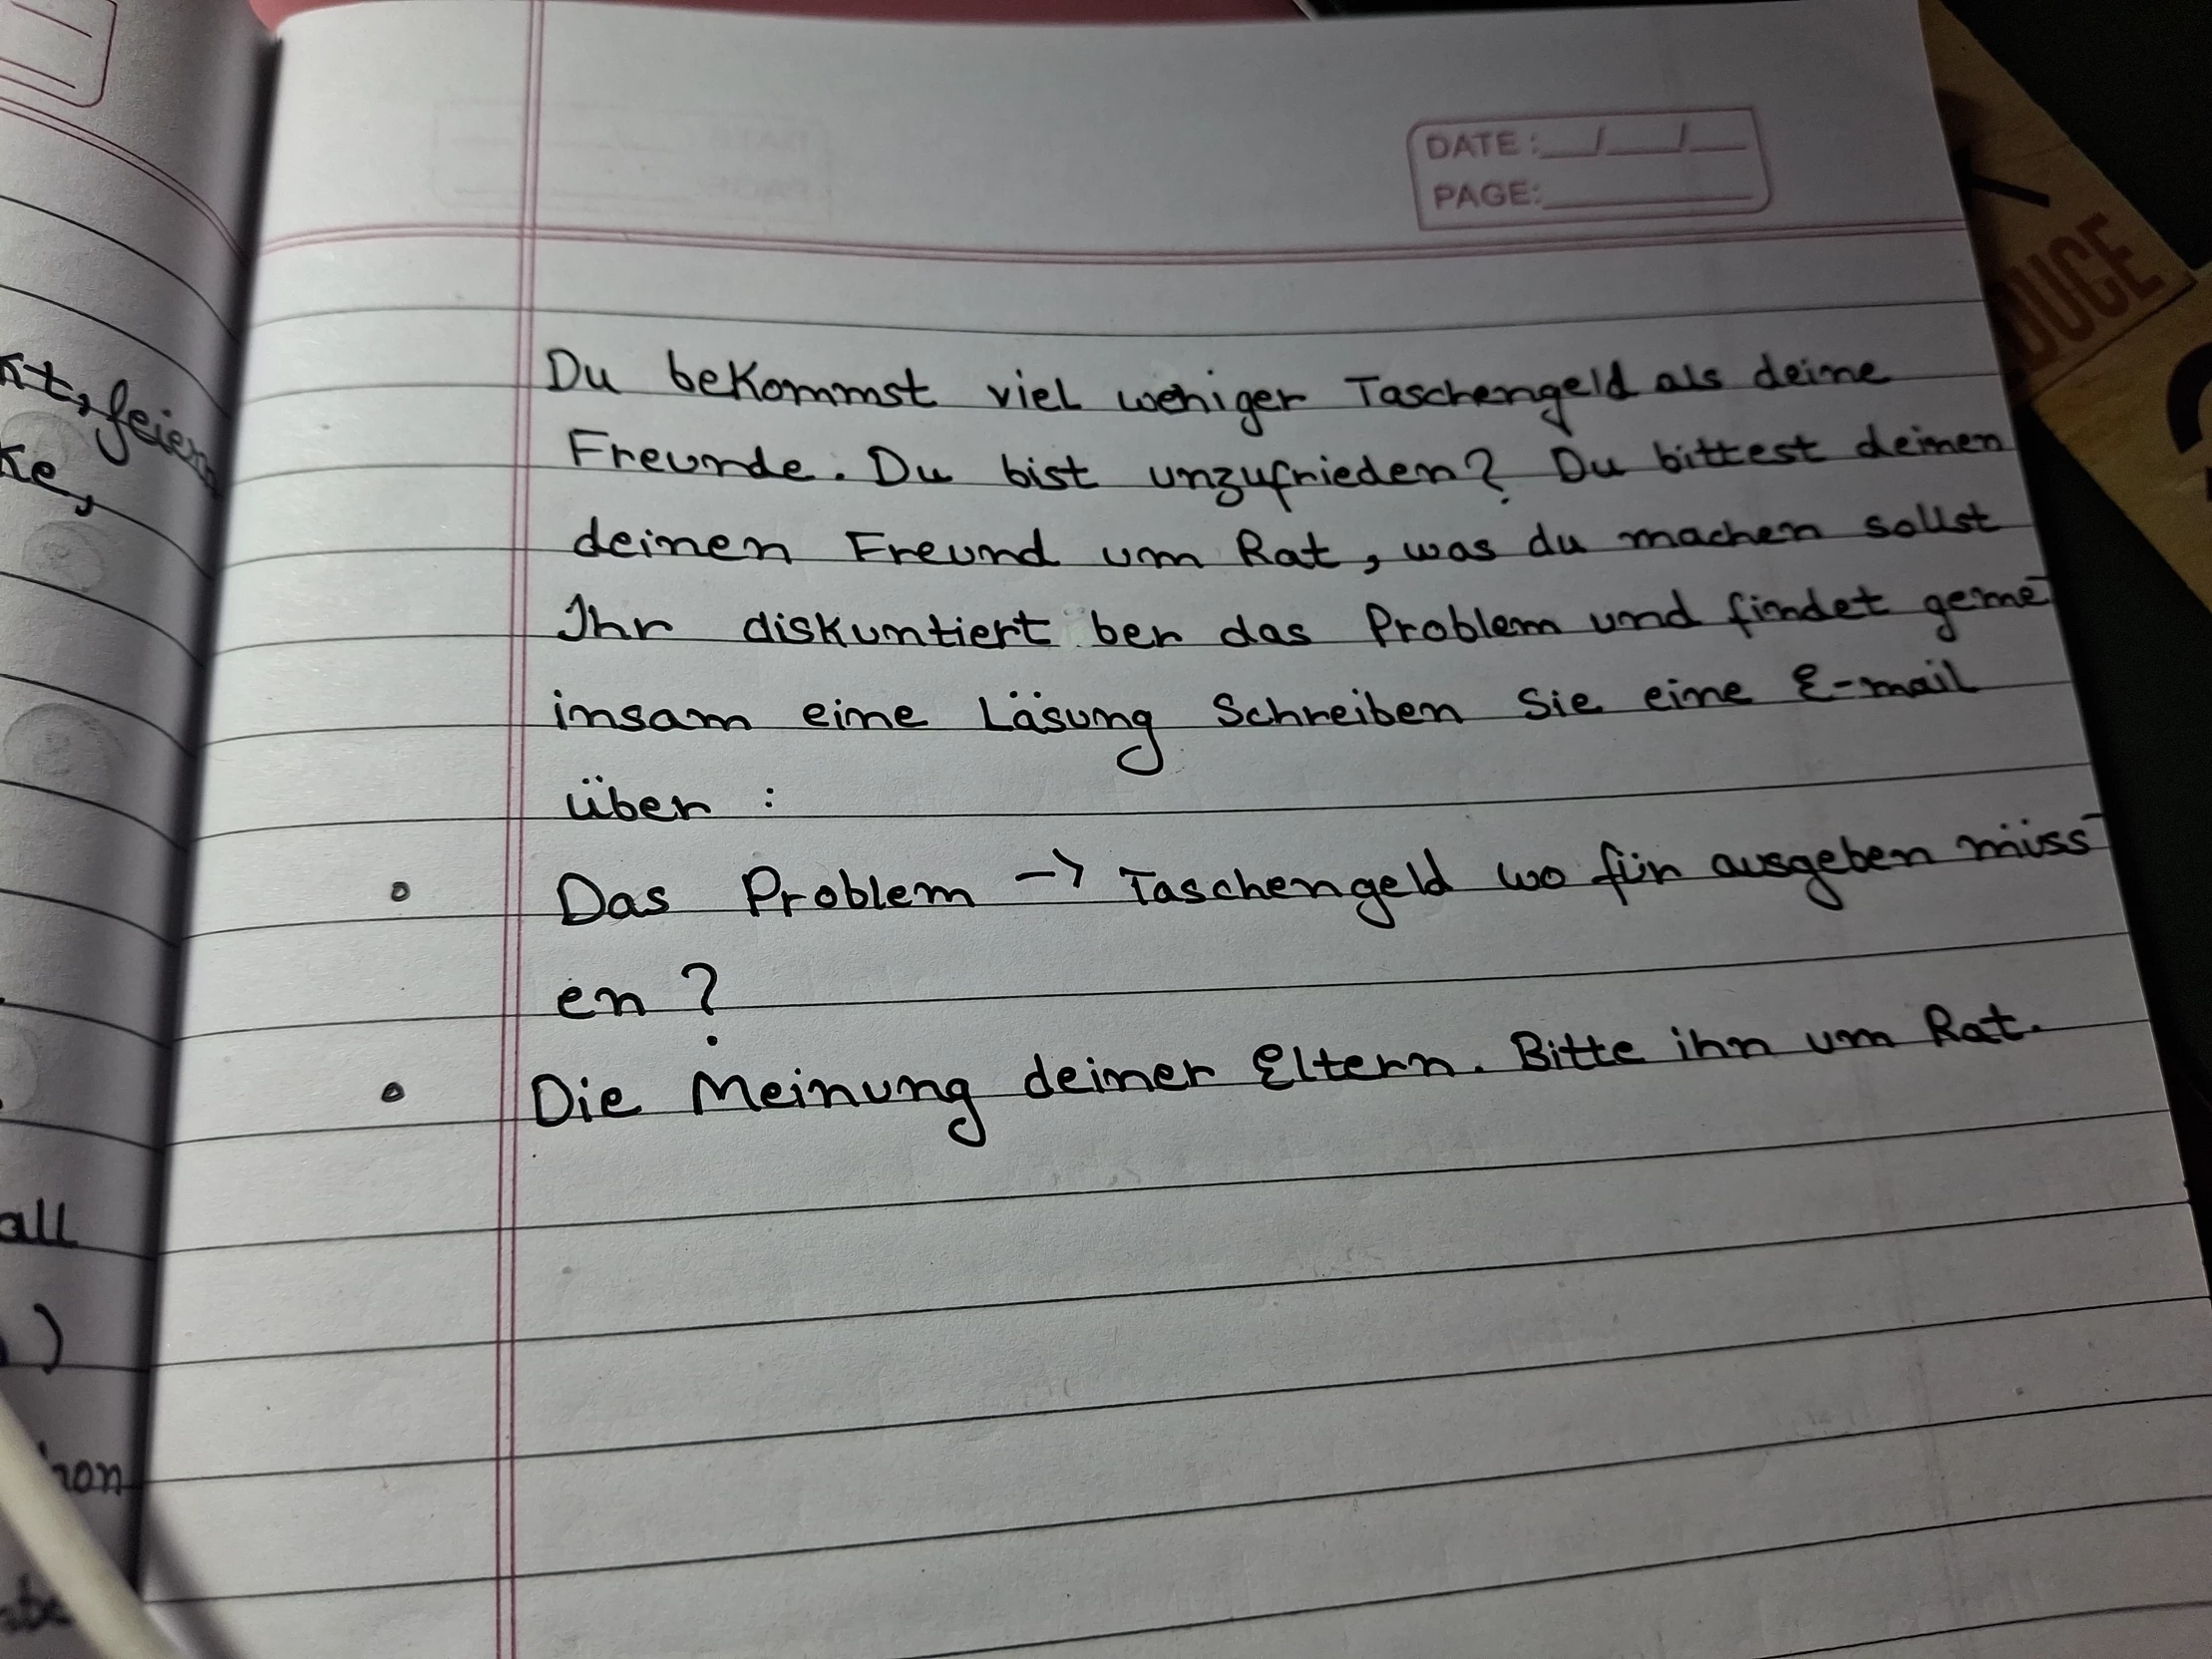 DATE: __/__/__
PAGE:
Du bekommst viel weniger Taschengeld als deine
Freunde. Du bist unzufrieden? Du bittest deinen
deinen Freund um Rat, was du machen sollst
Ihr diskuntiert ber das Problem und findet geme-
insam eine Läsung Schreiben Sie eine E-mail
über :
• Das Problem -> Taschengeld wo für ausgeben müss-
en?
• Die Meinung deiner Eltern. Bitte ihn um Rat.
all
)
DUCE